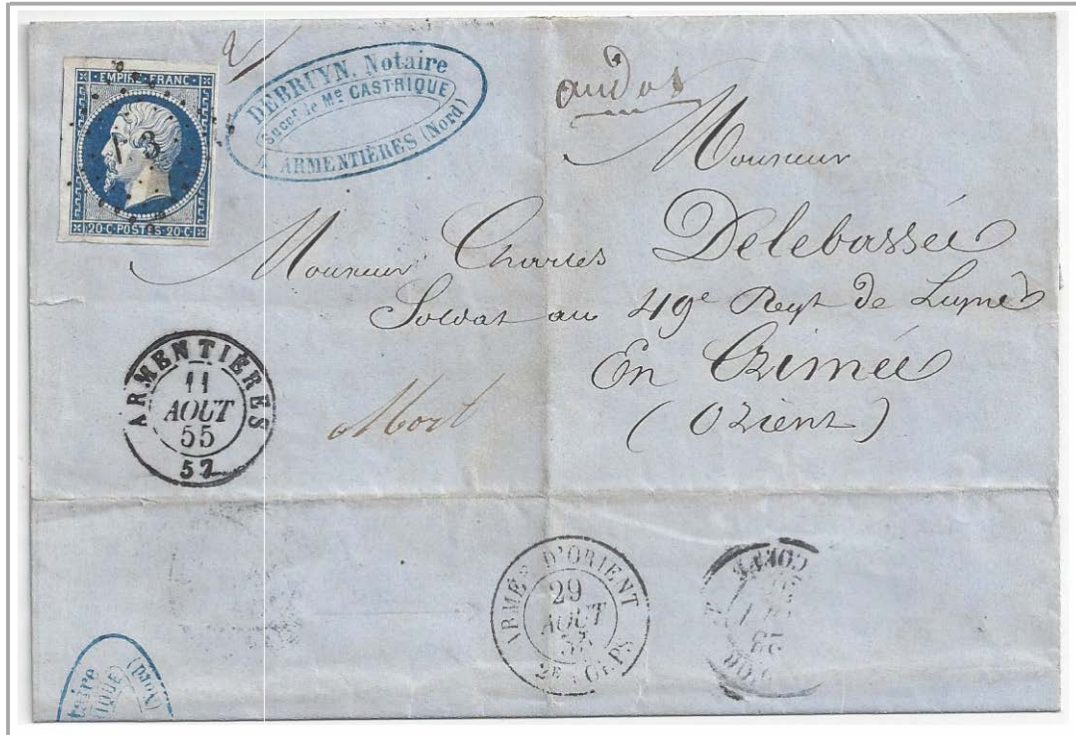 EMPIRE FRANC
3
20·C·POSTES·20·C
DEBRUYN, Notaire
Succr de Me CASTRIQUE
À ARMENTIÈRES (Nord)
au dos
Monsieur
Monsieur Charles Delebassée
Soldat au 49e Regt de Ligne
En Crimée
(Orient)
ARMENTIÈRES
11
AOUT
55
52
Mort
ARMÉE D'ORIENT
29
AOUT
55
2E CORPS
(Nord)
taire
RIQUE